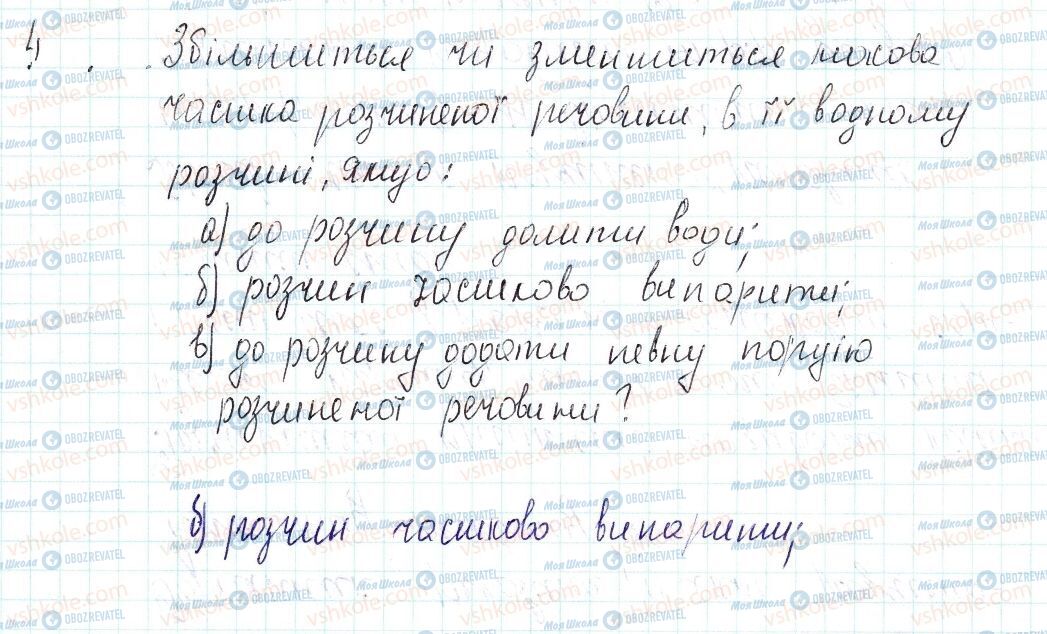 4
Збільшиться чи зменшиться масова
частка розчиненої речовини, в її водному
розчині, якщо:
а) до розчину долити води;
б) розчин частково випарити;
в) до розчину додати певну порцію
розчиненої речовини?
б) розчин частково випарити;